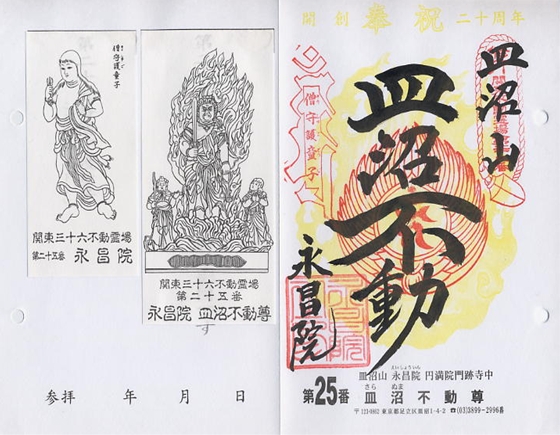 開創奉祝二十周年
皿沼山
皿沼不動
永昌院
僧守護童子
皿沼山 永昌院 円満院門跡寺中
えいしょういん
第25番 皿沼不動尊
さら ぬま
東京都足立区皿沼1-4-2 ☎(03)3899-2996番
僧守護童子
関東三十六不動霊場
第二十五番 永昌院
関東三十六不動霊場
第二十五番
永昌院 皿沼不動尊
参拝 年 月 日